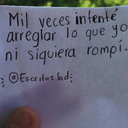 Mil veces intenté
arreglar lo que yo
ni siquiera rompí.
@Escritos Sad